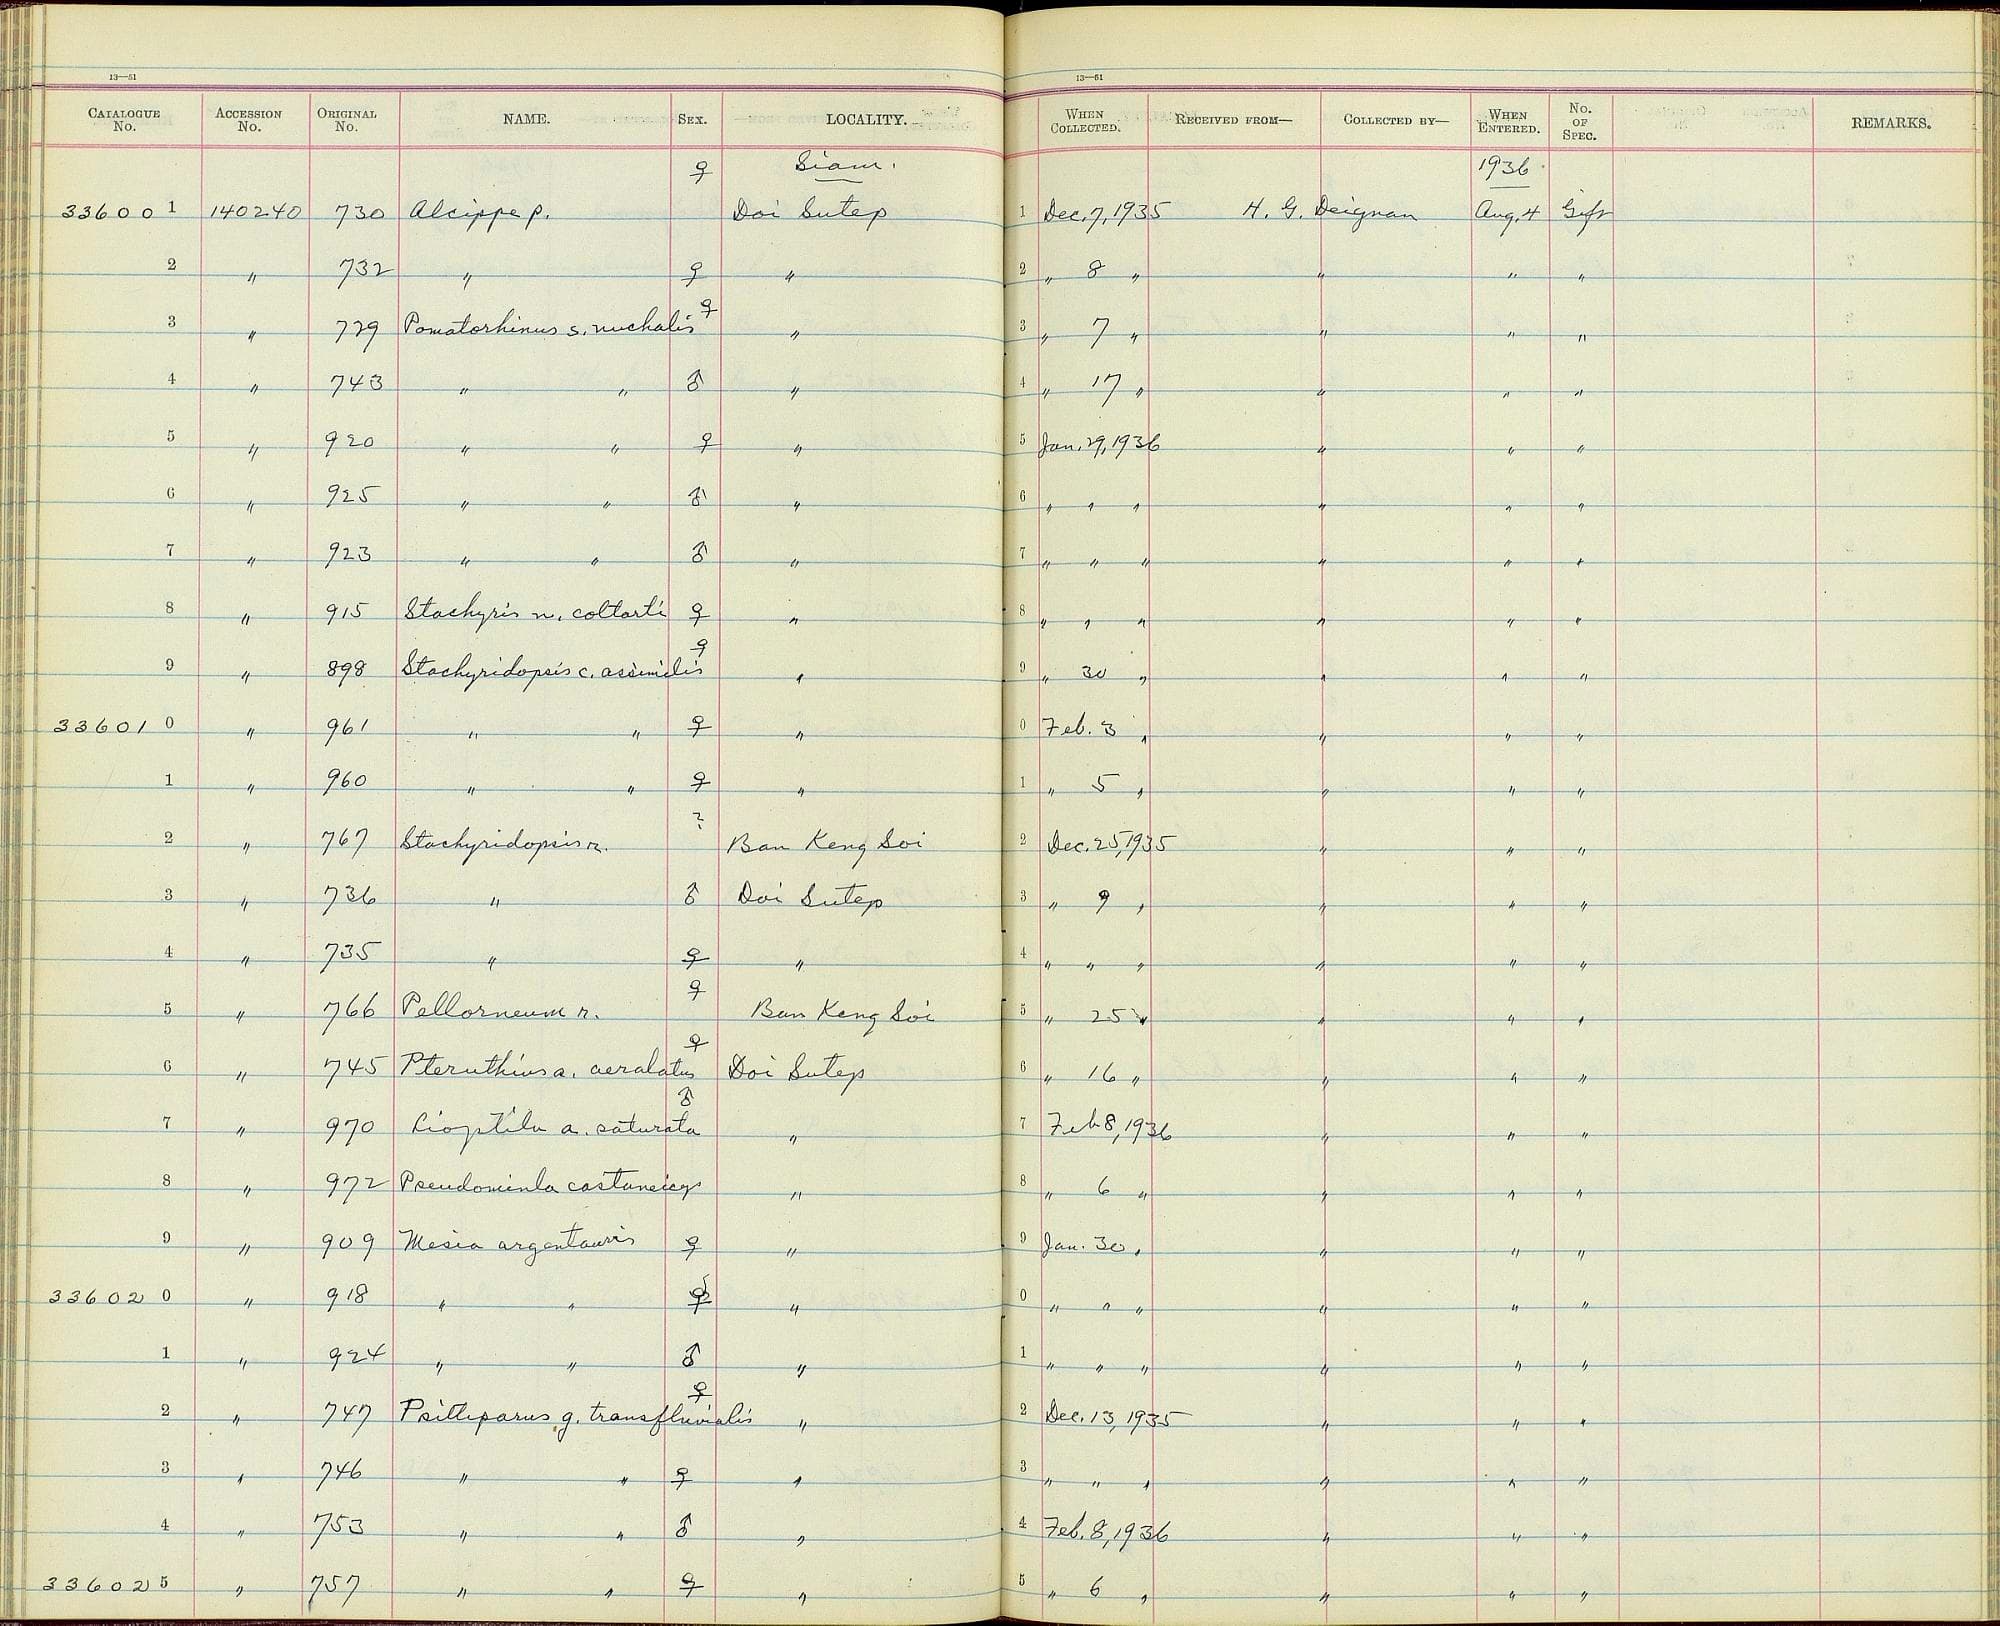 13—51 13—51
CATALOGUE No. ACCESSION No. ORIGINAL No. NAME. SEX. LOCALITY. WHEN COLLECTED. RECEIVED FROM— COLLECTED BY— WHEN ENTERED. No. OF SPEC. REMARKS.
♀ Siam. 1936
33600 1 140240 730 Alcippe p. Doi Sutep 1 Dec. 7, 1935 H. G. Deignan Aug. 4 Gift
2 " 732 " ♀ " 2 " 8 " " " "
3 " 729 Pomatorhinus s. nuchalis ♀ " 3 " 7 " " " "
4 " 743 " " ♂ " 4 " 17 " " " "
5 " 920 " " ♀ " 5 Jan. 29, 1936 " " "
6 " 925 " " ♂ " 6 " " " " " "
7 " 923 " " ♂ " 7 " " " " " "
8 " 915 Stachyris n. coltarti ♀ " 8 " " " " " "
9 " 898 Stachyridopsis c. assimilis ♀ " 9 " 30 " " " "
33601 0 " 961 " " ♀ " 0 Feb. 3 " " " "
1 " 960 " " ♀ " 1 " 5 " " " "
2 " 767 Stachyridopsis r. ? Ban Keng Soi 2 Dec. 25, 1935 " " "
3 " 736 " ♂ Doi Sutep 3 " 9 " " " "
4 " 735 " ♀ " 4 " " " " " "
5 " 766 Pellorneum r. ♀ Ban Keng Soi 5 " 25 " " " "
6 " 745 Pteruthius a. aeralatus ♀ Doi Sutep 6 " 16 " " " "
7 " 970 Lioptila a. saturata ♂ " 7 Feb 8, 1936 " " "
8 " 972 Pseudominla castaneiceps " 8 " 6 " " " "
9 " 909 Mesia argentauris ♀ " 9 Jan. 30 " " " "
33602 0 " 918 " " ♀ " 0 " " " " " "
1 " 924 " " ♂ " 1 " " " " " "
2 " 747 Psittiparus g. transfluvialis ♀ " 2 Dec. 13, 1935 " " "
3 " 746 " " ♀ " 3 " " " " " "
4 " 753 " " ♂ " 4 Feb. 8, 1936 " " "
33602 5 " 757 " " ♀ " 5 " 6 " " " "